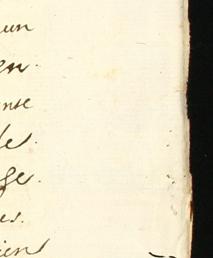 un
en.
ense
de.
ge.
es.
cien